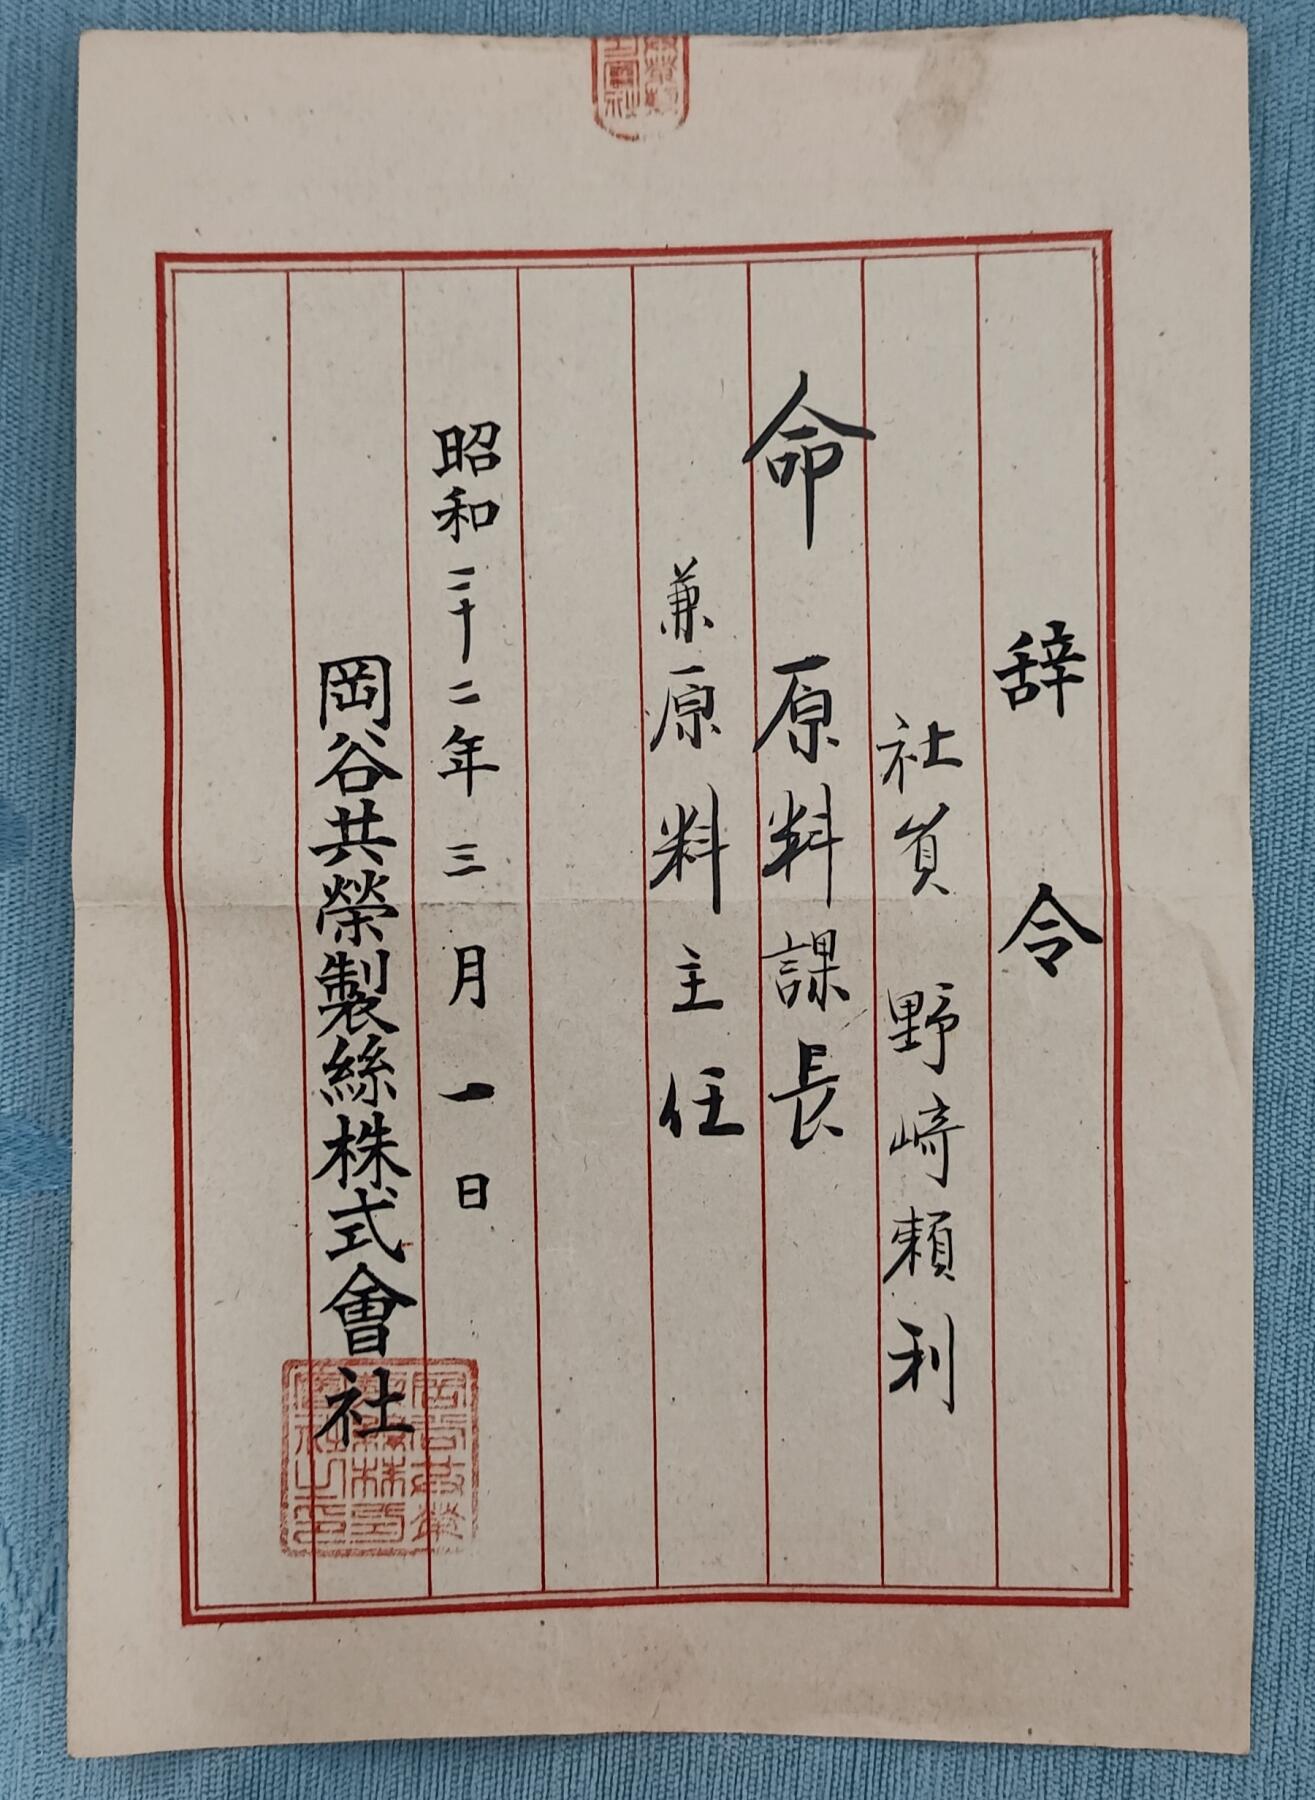 辞令
社員 野崎頼利
命 原料課長
兼原料主任
昭和二十二年三月一日
岡谷共榮製絲株式會社